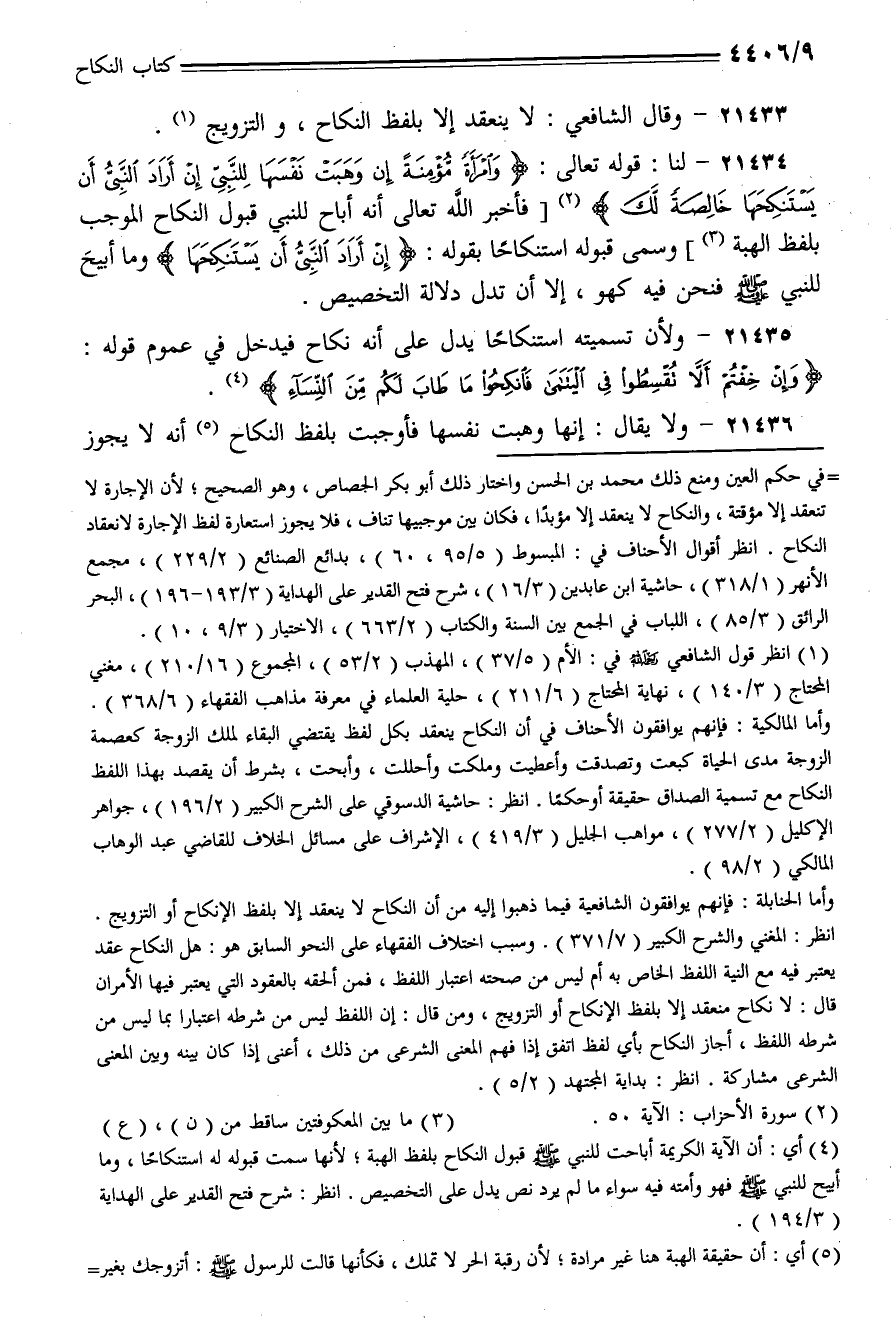 ٤٤٠٦/٩ كتاب النكاح
٢١٤٣٣ - وقال الشافعي : لا ينعقد إلا بلفظ النكاح ، و التزويج (١) .
٢١٤٣٤ - لنا : قوله تعالى : ﴿ وَٱمْرَأَةً مُّؤْمِنَةً إِن وَهَبَتْ نَفْسَهَا لِلنَّبِيِّ إِنْ أَرَادَ ٱلنَّبِيُّ أَن
يَسْتَنكِحَهَا خَالِصَةً لَّكَ ﴾ (٢) [ فأخبر اللَّه تعالى أنه أباح للنبي قبول النكاح الموجب
بلفظ الهبة (٣) ] وسمى قبوله استنكاحًا بقوله : ﴿ إِنْ أَرَادَ ٱلنَّبِيُّ أَن يَسْتَنكِحَهَا ﴾ وما أبيحَ
للنبي ﷺ فنحن فيه كهو ، إلا أن تدل دلالة التخصيص .
٢١٤٣٥ - ولأن تسميته استنكاحًا يدل على أنه نكاح فيدخل في عموم قوله :
﴿ وَإِنْ خِفْتُمْ أَلَّا تُقْسِطُوا۟ فِى ٱلْيَتَٰمَىٰ فَٱنكِحُوا۟ مَا طَابَ لَكُم مِّنَ ٱلنِّسَآءِ ﴾ (٤) .
٢١٤٣٦ - ولا يقال : إنها وهبت نفسها فأوجبت بلفظ النكاح (٥) أنه لا يجوز
=في حكم العين ومنع ذلك محمد بن الحسن واختار ذلك أبو بكر الجصاص ، وهو الصحيح ؛ لأن الإجارة لا
تنعقد إلا مؤقتة ، والنكاح لا ينعقد إلا مؤبدًا ، فكان بين موجبيها تناف ، فلا يجوز استعارة لفظ الإجارة لانعقاد
النكاح . انظر أقوال الأحناف في : المبسوط ( ٩٥/٥ ، ٦٠ ) ، بدائع الصنائع ( ٢٢٩/٢ ) ، مجمع
الأنهر ( ٣١٨/١ ) ، حاشية ابن عابدين ( ١٦/٣ ) ، شرح فتح القدير على الهداية ( ١٩٣/٣-١٩٦ ) ، البحر
الرائق ( ٨٥/٣ ) ، اللباب في الجمع بين السنة والكتاب ( ٦٦٣/٢ ) ، الاختيار ( ٩/٣ ، ١٠ ) .
(١) انظر قول الشافعي ﵀ في : الأم ( ٣٧/٥ ) ، المهذب ( ٥٣/٢ ) ، المجموع ( ٢١٠/١٦ ) ، مغني
المحتاج ( ١٤٠/٣ ) ، نهاية المحتاج ( ٢١١/٦ ) ، حلية العلماء في معرفة مذاهب الفقهاء ( ٣٦٨/٦ ) .
وأما المالكية : فإنهم يوافقون الأحناف في أن النكاح ينعقد بكل لفظ يقتضي البقاء لملك الزوجة كعصمة
الزوجة مدى الحياة كبعت وتصدقت وأعطيت وملكت وأحللت ، وأبحت ، بشرط أن يقصد بهذا اللفظ
النكاح مع تسمية الصداق حقيقة أوحكمًا . انظر : حاشية الدسوقي على الشرح الكبير ( ١٩٦/٢ ) ، جواهر
الإكليل ( ٢٧٧/٢ ) ، مواهب الجليل ( ٤١٩/٣ ) ، الإشراف على مسائل الخلاف للقاضي عبد الوهاب
المالكي ( ٩٨/٢ ) .
وأما الحنابلة : فإنهم يوافقون الشافعية فيما ذهبوا إليه من أن النكاح لا ينعقد إلا بلفظ الإنكاح أو التزويج .
انظر : المغني والشرح الكبير ( ٣٧١/٧ ) . وسبب اختلاف الفقهاء على النحو السابق هو : هل النكاح عقد
يعتبر فيه مع النية اللفظ الخاص به أم ليس من صحته اعتبار اللفظ ، فمن ألحقه بالعقود التي يعتبر فيها الأمران
قال : لا نكاح منعقد إلا بلفظ الإنكاح أو التزويج ، ومن قال : إن اللفظ ليس من شرطه اعتبارا بما ليس من
شرطه اللفظ ، أجاز النكاح بأي لفظ اتفق إذا فهم المعنى الشرعى من ذلك ، أعنى إذا كان بينه وبين المعنى
الشرعى مشاركة . انظر : بداية المجتهد ( ٥/٢ ) .
(٢) سورة الأحزاب : الآية ٥٠ . (٣) ما بين المعكوفتين ساقط من ( ن ) ، ( ع )
(٤) أي : أن الآية الكريمة أباحت للنبي ﷺ قبول النكاح بلفظ الهبة ؛ لأنها سمت قبوله له استنكاحًا ، وما
أبيح للنبي ﷺ فهو وأمته فيه سواء ما لم يرد نص يدل على التخصيص . انظر : شرح فتح القدير على الهداية
( ١٩٤/٣ ) .
(٥) أي : أن حقيقة الهبة هنا غير مرادة ؛ لأن رقبة الحر لا تملك ، فكأنها قالت للرسول ﷺ : أتزوجك بغير=